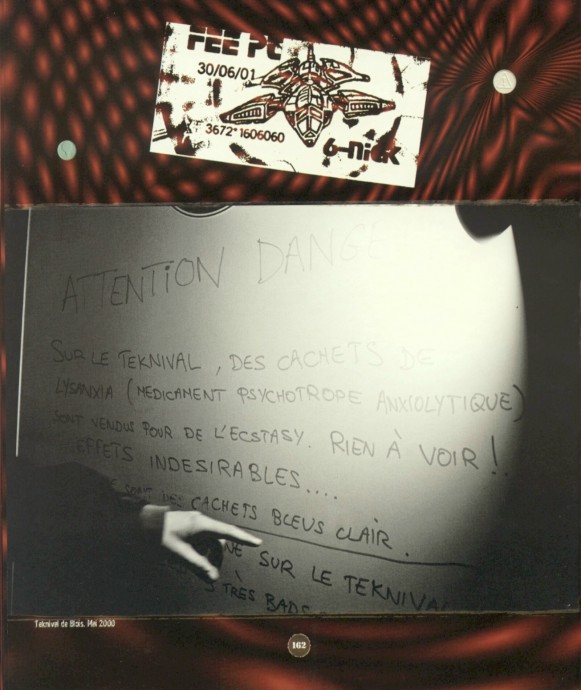 FEE PC
30/06/01
3672*1606060
6-nick
ATTENTION DANGE
SUR LE TEKNIVAL, DES CACHETS DE
LYSANXIA (MEDICAMENT PSYCHOTROPE ANXIOLYTIQUE)
SONT VENDUS POUR DE L'ECSTASY. RIEN À VOIR !
EFFETS INDESIRABLES....
SONT DES CACHETS BLEUS CLAIR.
NE SUR LE TEKNIVAL
TRÈS BADS
Teknival de Blois. Mai 2000
162